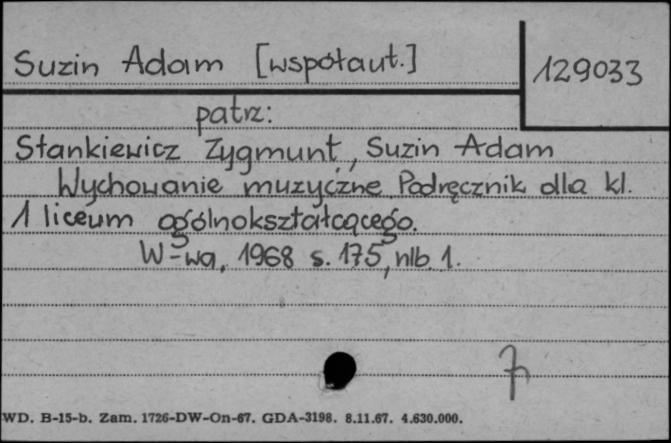 Suzin Adam [współaut.]
129033
patrz:
Stankiewicz Zygmunt, Suzin Adam
Wychowanie muzyczne. Podręcznik dla kl.
1 liceum ogólnokształcącego.
W-wa, 1968 s. 175, nlb. 1.
WD. B-15-b. Zam. 1726-DW-On-67. GDA-3198. 8.11.67. 4.630.000.